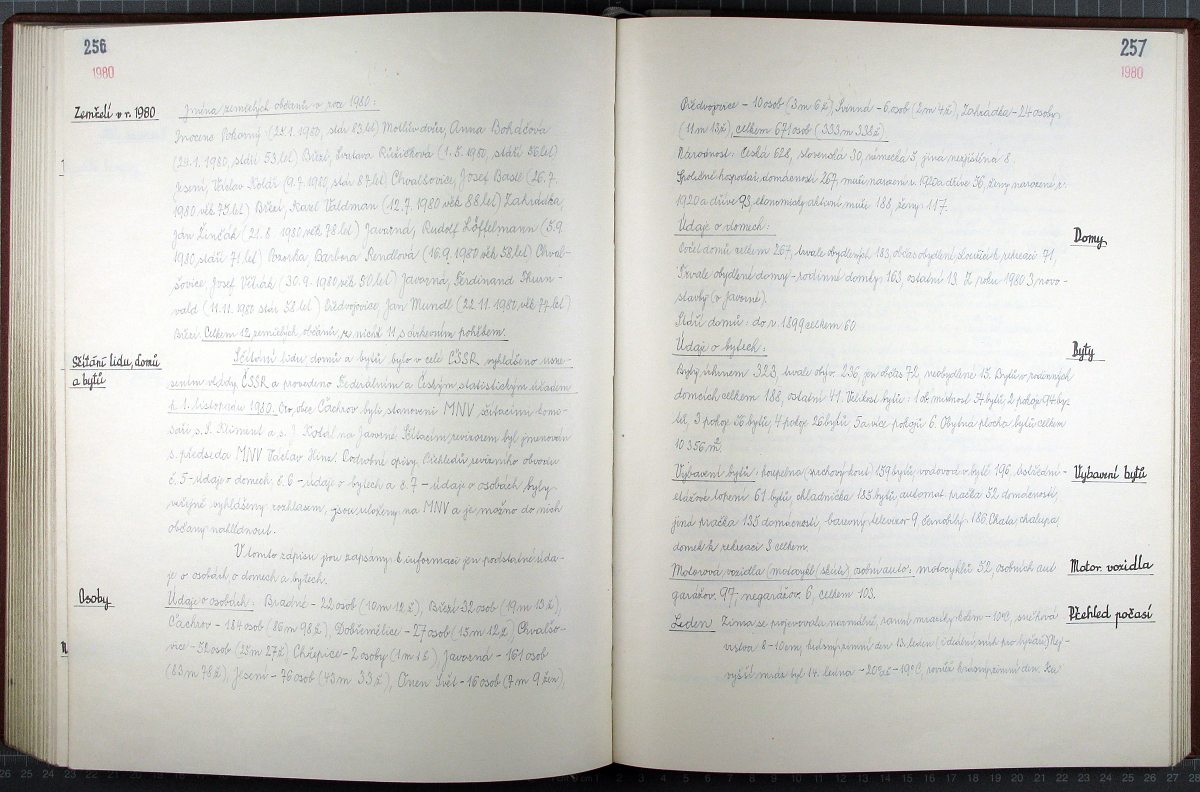 256
1980
Zemřelí v r. 1980
Jména zemřelých občanů v roce 1980:
Inocenc Pokorný (24.1. 1980, stár 83 let) Anna Boháčová
(24.1. 1980, stáří 53 let) Březí, Růžičková (1.5. 1980, stáří 56 let)
Jesení, Václav Kolář (9.7. 1980, stár 87 let) Chvalšovice, Josef Bastl (26.7.
1980 věk 75 let) Březí, Karel Valdman (12.7. 1980 věk 88 let) Zahrádka,
Ján Činčák (21.8. 1980 věk 78 let) Javorná, Rudolf Löffelmann (5.9.
1980, stáří 71 let) Barbora Rendlová (16.9. 1980 věk 58 let) Chval-
šovice, Josef (30.9. 1980 věk 50 let) Javorná, Ferdinand Thurn-
vald (11.11. 1980 stár 58 let) Předvojovice, Jan Mundl (22.11. 1980, věk 77 let)
Březí. Celkem 12 zemřelých občanů, z nichž 11 s církevním pohřbem.
Sčítání lidu, domů
a bytů
Sčítání lidu, domů a bytů bylo v celé ČSSR vyhlášeno usne-
sením vlády ČSSR a provedeno Federálním a Českým statistickým úřadem
k 1. listopadu 1980. Pro obec Čachrov byli stanoveni MNV sčítacími komi-
saři s. J. Kliment a s. J. Kodal na Javorné. Sčítacím revizorem byl jmenován
s. předseda MNV Václav Hinz. Podrobné opisy Přehledů revizního obvodu
č. 5 - údaje o domech č. 6 - údaje o bytech a č. 7 - údaje o osobách byly
veřejně vyhlášeny rozhlasem, jsou uloženy na MNV a je možno do nich
občany nahlédnout.
V tomto zápisu jsou zapsány k informaci jen podstatné úda-
je o osobách o domech a bytech.
Osoby
Údaje o osobách: Bradné - 22 osob (10 m 12 ž), Březí 32 osob (19 m 13 ž),
Čachrov - 184 osob (86 m 98 ž), Dobřemělice - 27 osob (15 m 12 ž) Chvalšo-
vice - 52 osob (25 m 27 ž) Chřepice - 2 osoby (1 m 1 ž), Javorná - 161 osob
(83 m 78 ž), Jesení - 76 osob (43 m 33 ž), Onen Svět - 16 osob (7 m 9 žen),
257
1980
Předvojovice - 10 osob (3 m 6 ž), Svinná - 6 osob (2 m 4 ž), Zahrádka - 24 osoby
(11 m 13 ž), celkem 671 osob (333 m 338 ž)
Národnost: Česká 628, slovenská 30, německá 5, jiná nezjištěná 8.
Společně hospodař. domácností 267, muži narození r. 1920 a dříve 56, ženy narozené r.
1920 a dříve 93, ekonomicky aktivní muži 188, ženy 117.
Domy
Údaje o domech:
Počet domů celkem 267, trvale obydlených 183, občas obydlení sloužících rekreaci 71,
Trvale obydlené domy - rodinné domky 163, ostatní 18. Z roku 1980 3 novo-
stavby (v Javorné).
Stáří domů: do r. 1899 celkem 60
Byty
Údaje o bytech:
Byty úhrnem 323, trvale obyv. 236, jen občas 72, neobydlené 15. Bytů v rodinných
domcích celkem 188, ostatní 41. Velikost bytů: 1 místnost 34 bytů, 2 pokoje 94 by-
tů, 3 pokoje 76 bytů, 4 pokoje 26 bytů 5 a více pokojů 6. Obytná plocha bytů celkem
10 356 m².
Vybavení bytů
Vybavení bytů: koupelna (sprchový kout) 159 bytů, vodovod v bytě 196, ústřední -
etážové topení 61 bytů, chladnička 185 bytů, automat. pračka 52 domácností,
jiná pračka 135 domácností, barevný televizor 9 černobílý 186. Chata, chalupa,
domek k rekreaci 3 celkem.
Motor. vozidla
Motorová vozidla (motocykl (skútr), osobní auto: motocyklů 52, osobních aut
garážov. 97, negarážov. 6, celkem 103.
Přehled počasí
Leden Zima se projevovala normálně, ranní mrazíky kolem - 10°C, sněhová
vrstva 8 - 10 cm, krásný zimní den 13. leden (ideální sníh pro lyžaře). Nej-
vyšší mráz byl 14. ledna - 20°C - 19°C, krásný zimní den.